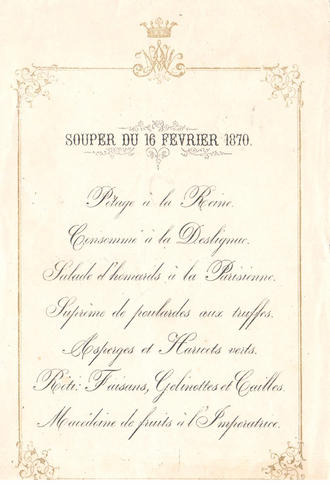 SOUPER DU 16 FEVRIER 1870.
Potage à la Reine.
Consommé à la Deslignac.
Salade d'homards à la Parisienne.
Suprème de poulardes aux truffes.
Asperges et Haricots verts.
Rôti: Faisans, Gelinottes et Cailles.
Macédoine de fruits à l'Imperatrice.